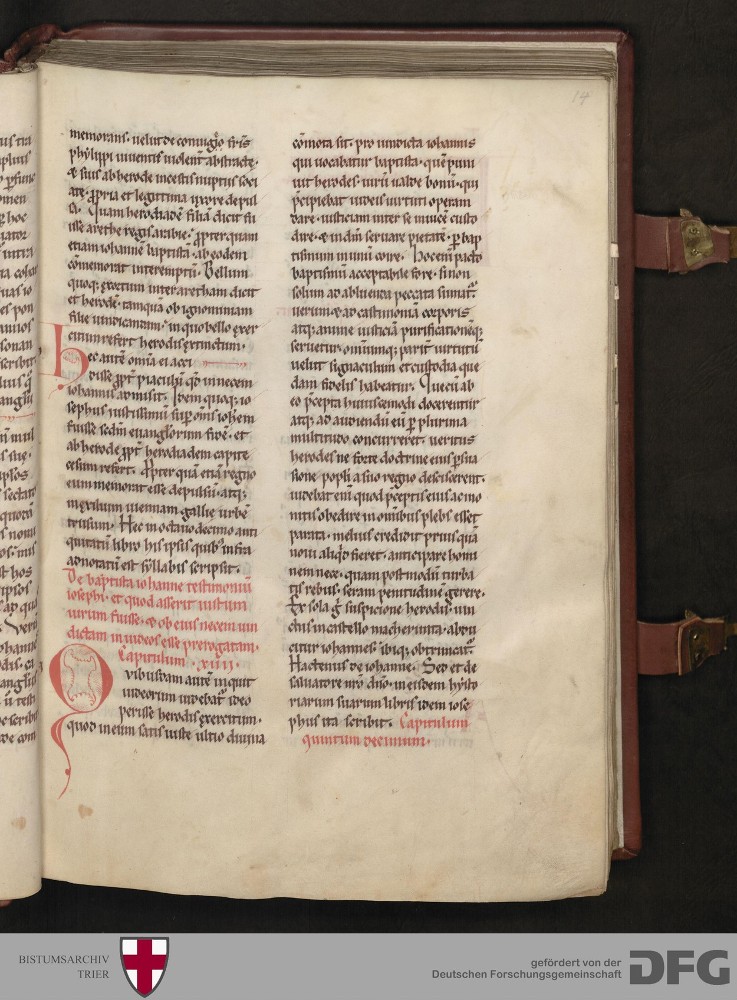 14
memorans · uelut de coniugio fr̄is
phylippi uiuentis uiolent̄ abstractę ·
& suis ab herode incestis nuptiis soci
atę · ꝓpria et legittima uxore depul
sa. Quam herodiadē filiā dicit fu
isse arethe regis arabię · ꝓpter quam
etiam iohannē baptistā · ab eodem
cōmemorat interemptū. Bellum
quoq; exortum inter aretham dicit
et herodē · tamquā ob ignominiam
filię uindicandam · in quo bello exer
citum refert herodis extinctum ·
Hec autē omnia ei acci
disse ꝓpt̄ piaculū qđ in necem
iohannis admisit. Idem quoq; io
sephus iustissimū suꝑ om̄s ioh̄em
fuisse secdm̄ euangliorum fidē · et
ab herode ꝓpt̄ herodiadem capite
cesum refert. Ꝓpter quā etiā regno
eum memorat esse depulsū · atq;
in exilium uiennam gallię urbē
trusum. Hec in octauo decimo anti
quitatū libro his ipsis quibꝰ infra
adnotatū est syllabis scripsit.
De baptista iohanne testimoniū
iosephi · et quod asserit iustum
uirum fuisse · & ob eius necem uin
dictam in iudeos esse prerogatam ·
Capitulum · xiiii ·
Quibusdam autē inquit
iudeorum uidebat̄ ideo
perisse herodis exercitum ·
quod in eum satis iuste ultio diuina
cōmota sit · pro uindicta iohannis
qui uocabatur baptista · quē puni
uit herodes · uirū ualde bonū · qui
p̄cipiebat iudeis uirtuti operam
dare · iusticiam inter se inuicē custo
dire · & in dm̄ seruare pietatē · ꝑ bap
tismum in unū coire. Hoc enī pacto
baptismū acceptabile fore · si non
solum ad abluenda peccata sumat̄ ·
uerum & ad castimoniā corporis
atq; animę iusticiā purificationēq;
seruetur · omniumq; parit̄ uirtutū
uelut signaculum et custodia que
dam fidelis habeatur. Que cū ab
eo p̄cepta huiuscemodi docerentur
atq; ad audiendū eū ꝑ plurima
multitudo concurreret · ueritus
herodes ne forte doctrine eius ꝑsua
sione popl̄i a suo regno desciscerent ·
uidebat enī quod p̄ceptis eius ac mo
nitis obedire in omnibus plebs esset
parata · melius credidit priusquā
noui aliqđ fieret · anticipare homi
nem nece · quam postmodū turba
tis rebus · seram penitudinē gerere ·
Ex sola g̊ suspicione herodis · uin
ctus in castello macherunta · abdu
citur iohannes · ibiq; obtruncat̄.
Hactenus de iohanne. Sed et de
saluatore nr̄o dn̄o · in eisdem hysto
riarum suarum libris idem iose
phus ita scribit. Capitulum
quintum decimum ·
BISTUMSARCHIV
TRIER
gefördert von der
Deutschen Forschungsgemeinschaft
DFG